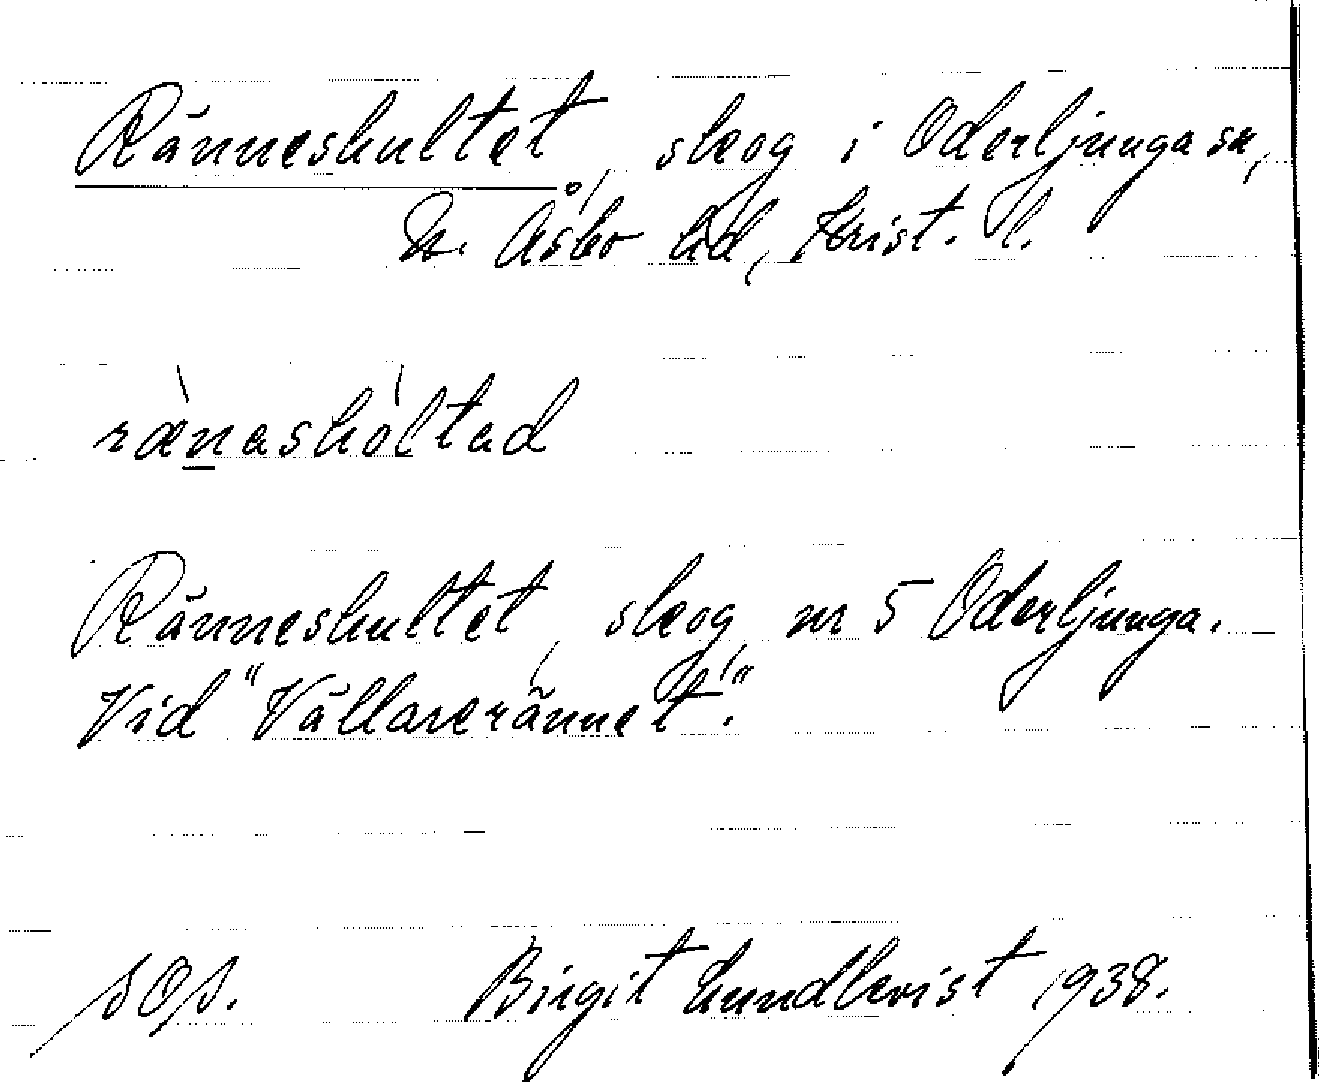 Ränneshultet, skog i Oderljunga sn,
N. Åsbo hd, Krist. l.
rænashòltad
Ränneshultet, skog, nr 5 Oderljunga.
Vid "Vällarerännet".
SOS. Birgit Lundkvist 1938.